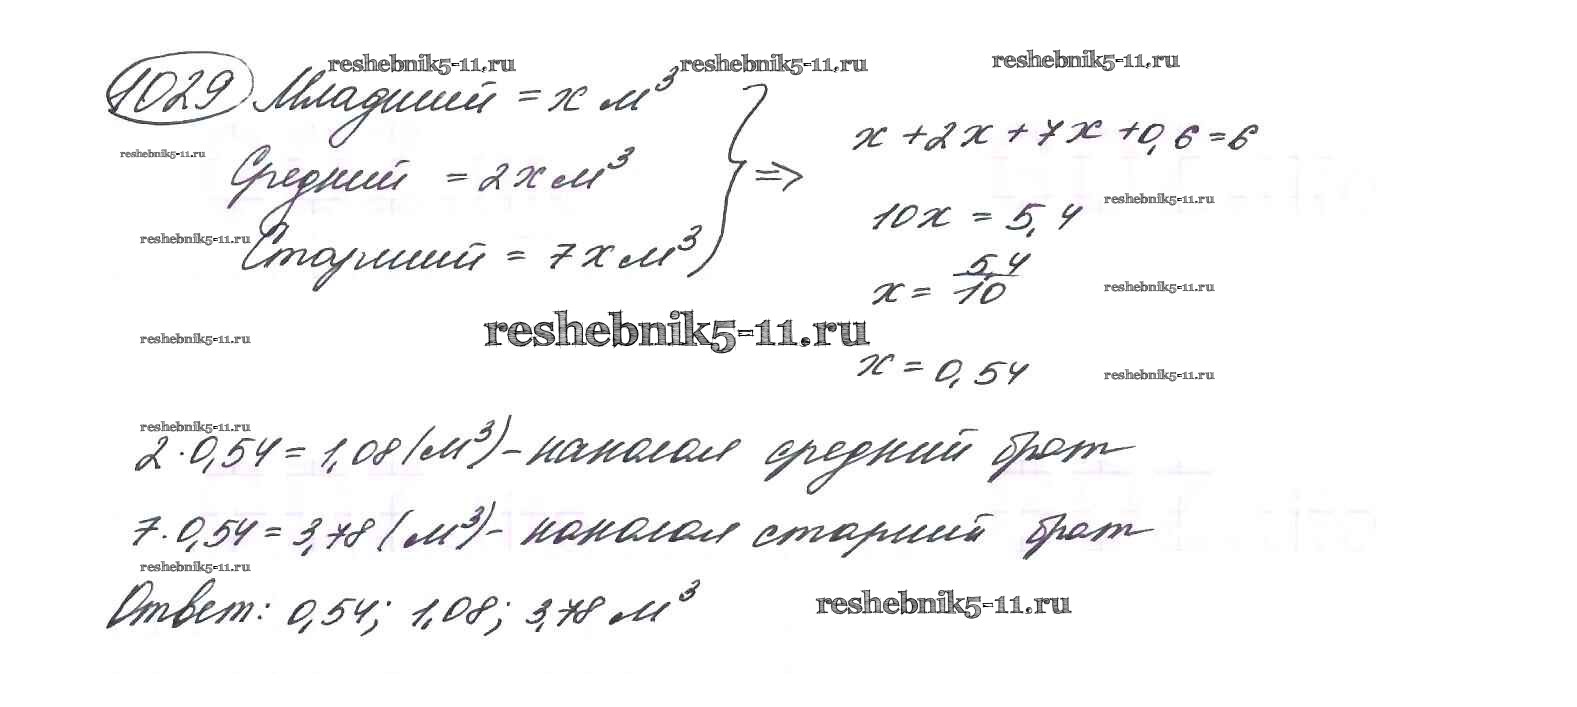 reshebnik5-11.ru reshebnik5-11.ru reshebnik5-11.ru
1029 Младший = x м³
x + 2x + 7x + 0,6 = 6
reshebnik5-11.ru
Средний = 2x м³
⇒
reshebnik5-11.ru
10x = 5,4
reshebnik5-11.ru
Старший = 7x м³
x = 5,4/10
reshebnik5-11.ru
reshebnik5-11.ru
reshebnik5-11.ru
x = 0,54
reshebnik5-11.ru
reshebnik5-11.ru
2 · 0,54 = 1,08 (м³) - наколол средний брат
7 · 0,54 = 3,78 (м³) - наколол старший брат
reshebnik5-11.ru
Ответ: 0,54; 1,08; 3,78 м³
reshebnik5-11.ru